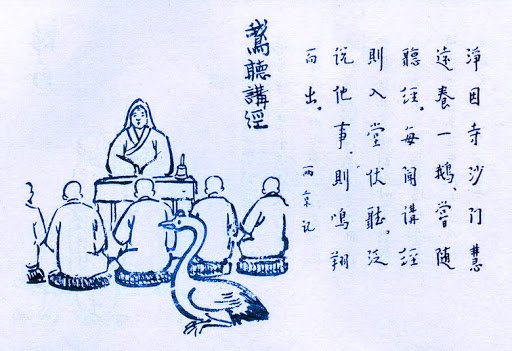 淨因寺沙门慧
遠養一鵝、嘗随
聽經。每闻講經
則入堂伏聽，泛
说他事，則鳴翔
而出。 两京记
鵞聽講經